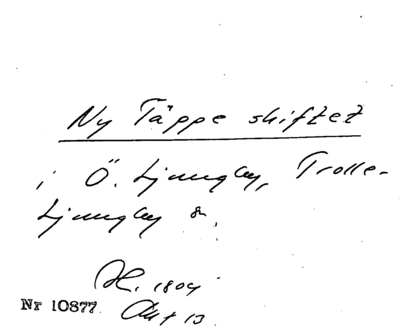 Ny Täppe skiftet
i Ö. Ljungby, Trolle-
Ljungby sn.
H. 1804
Nr 10877 Akt 13